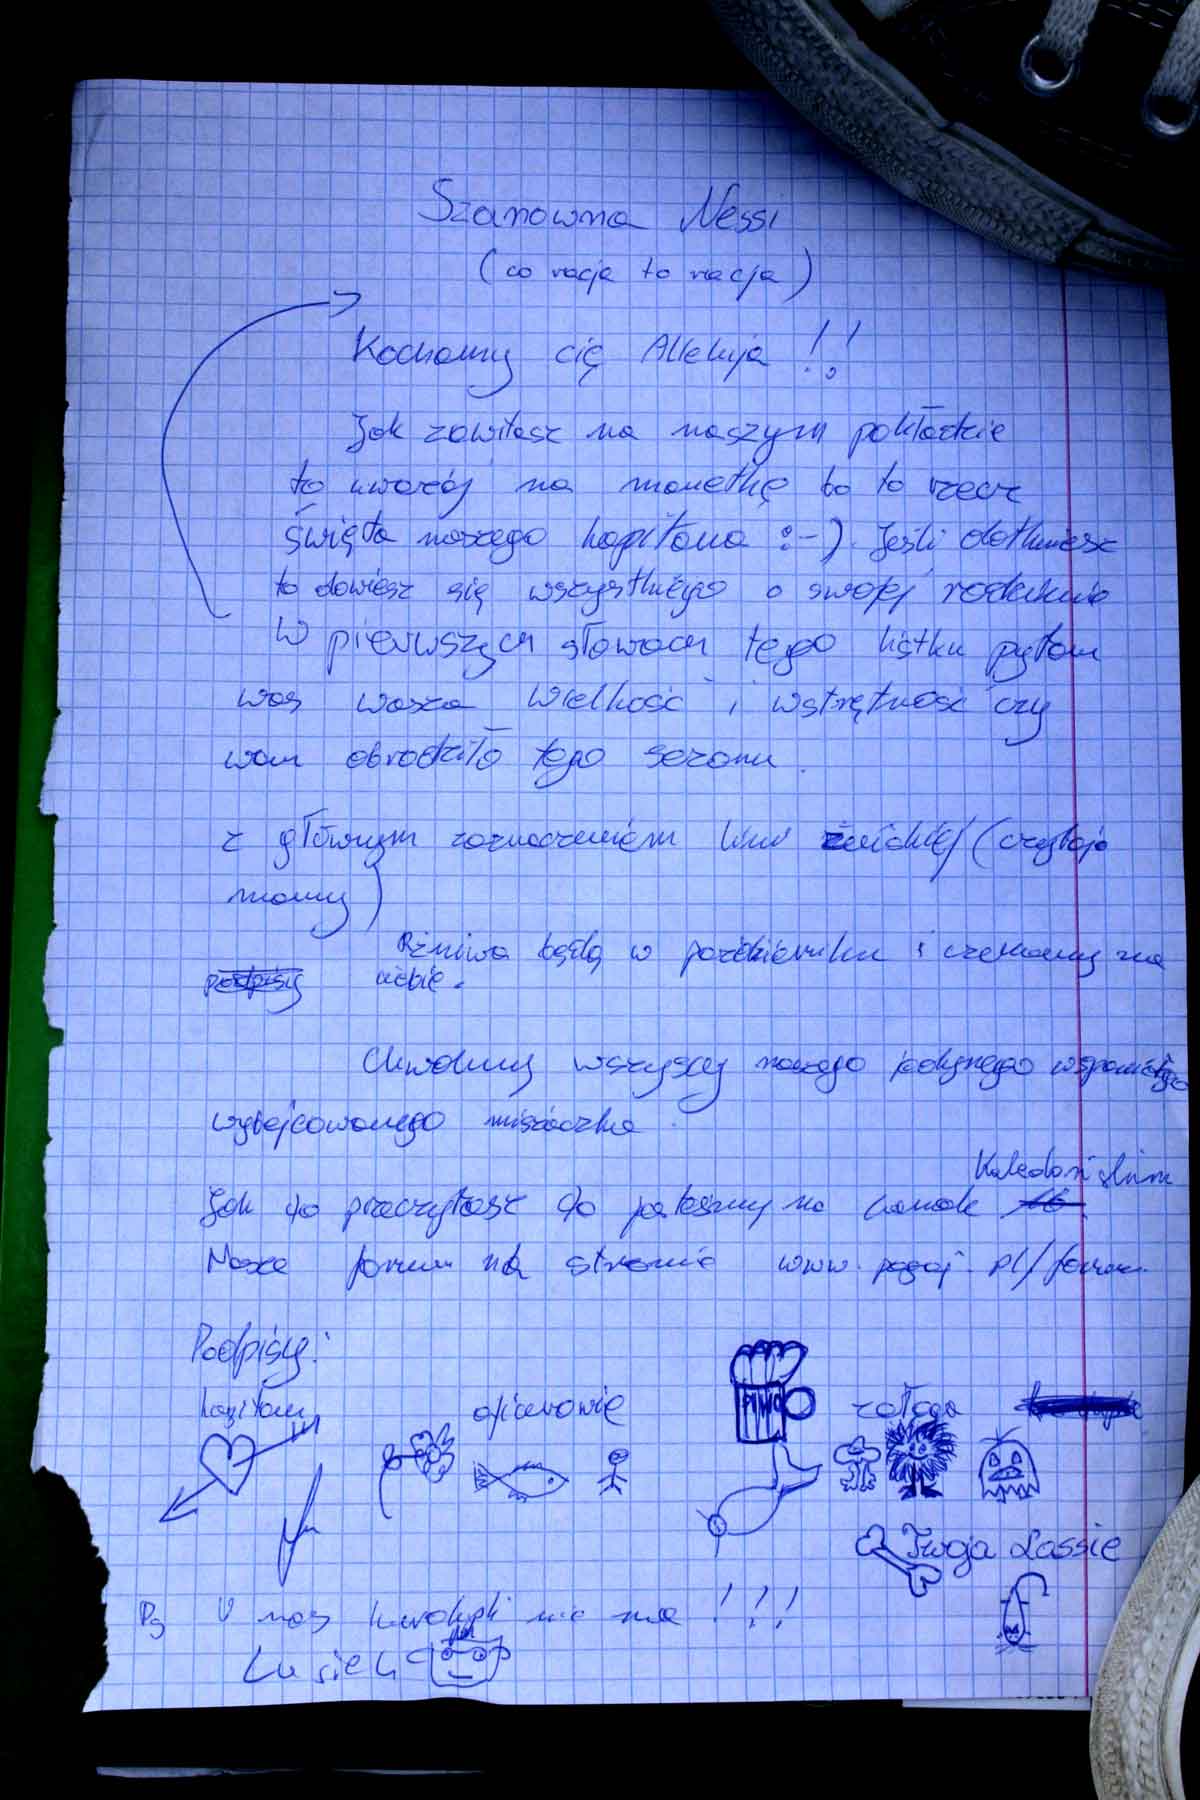 Szanowna Nessi
(co racja to racja)
Kochamy cię Alleluja !!
Jak zawitasz na naszym pokładzie
to uważaj na monetkę bo to rzecz
święta naszego kapitana :-). Jeśli dotkniesz
to dowiesz się wszystkiego o swojej rodzinie
W pierwszych słowach tego listku pytam
was wasza wielkość i wstrętność czy
wam obrodziło tego sezonu.
z głównym zaznaczeniem (czytaj
mamy)
Żniwa będą w październiku i czekamy na
podpisy ciebie.
Chwalmy wszyscy naszego jedynego
misiaczka.
Jak to przeczytasz to jesteśmy na kanale Kaledonijskim
Nasze forum na stronie www. .pl/forum
Podpisy:
kapitan oficerowie PIWO załoga
Twoja Lassie
Ps U nas nie ma !!!
Lusiek